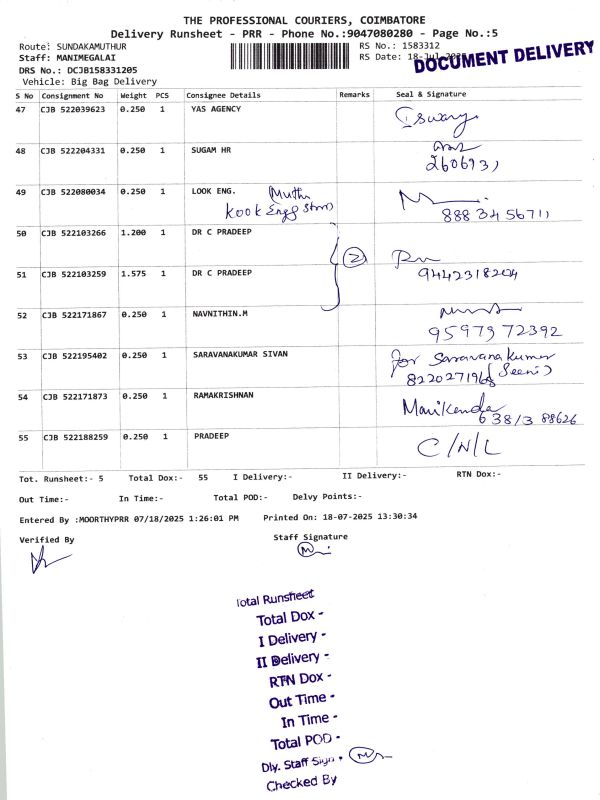 THE PROFESSIONAL COURIERS, COIMBATORE
Delivery Runsheet - PRR - Phone No.:9047080280 - Page No.:5
Route: SUNDAKAMUTHUR
RS No.: 1583312
Staff: MANIMEGALAI
RS Date: 18-Jul-2025
DOCUMENT DELIVERY
DRS No.: DCJB158331205
Vehicle: Big Bag Delivery
S No Consignment No Weight PCS Consignee Details Remarks Seal & Signature
47 CJB 522039623 0.250 1 YAS AGENCY
Iswarya
48 CJB 522204331 0.250 1 SUGAM HR
2606931
49 CJB 522080034 0.250 1 LOOK ENG. Muthu
Kook Engg
888 34 56711
50 CJB 522103266 1.200 1 DR C PRADEEP
2
51 CJB 522103259 1.575 1 DR C PRADEEP
9442318204
52 CJB 522171867 0.250 1 NAVNITHIN.M
95979 72392
53 CJB 522195402 0.250 1 SARAVANAKUMAR SIVAN for Saravanakumar
8220271968 (Seeni)
54 CJB 522171873 0.250 1 RAMAKRISHNAN
Manikanda
6 3813 88626
55 CJB 522188259 0.250 1 PRADEEP C/N/L
Tot. Runsheet:- 5 Total Dox:- 55 I Delivery:- II Delivery:- RTN Dox:-
Out Time:- In Time:- Total POD:- Delvy Points:-
Entered By :MOORTHYPRR 07/18/2025 1:26:01 PM Printed On: 18-07-2025 13:30:34
Verified By Staff Signature
Total Runsheet
Total Dox -
I Delivery -
II Delivery -
RTN Dox -
Out Time -
In Time -
Total POD -
Dly. Staff Sign -
Checked By